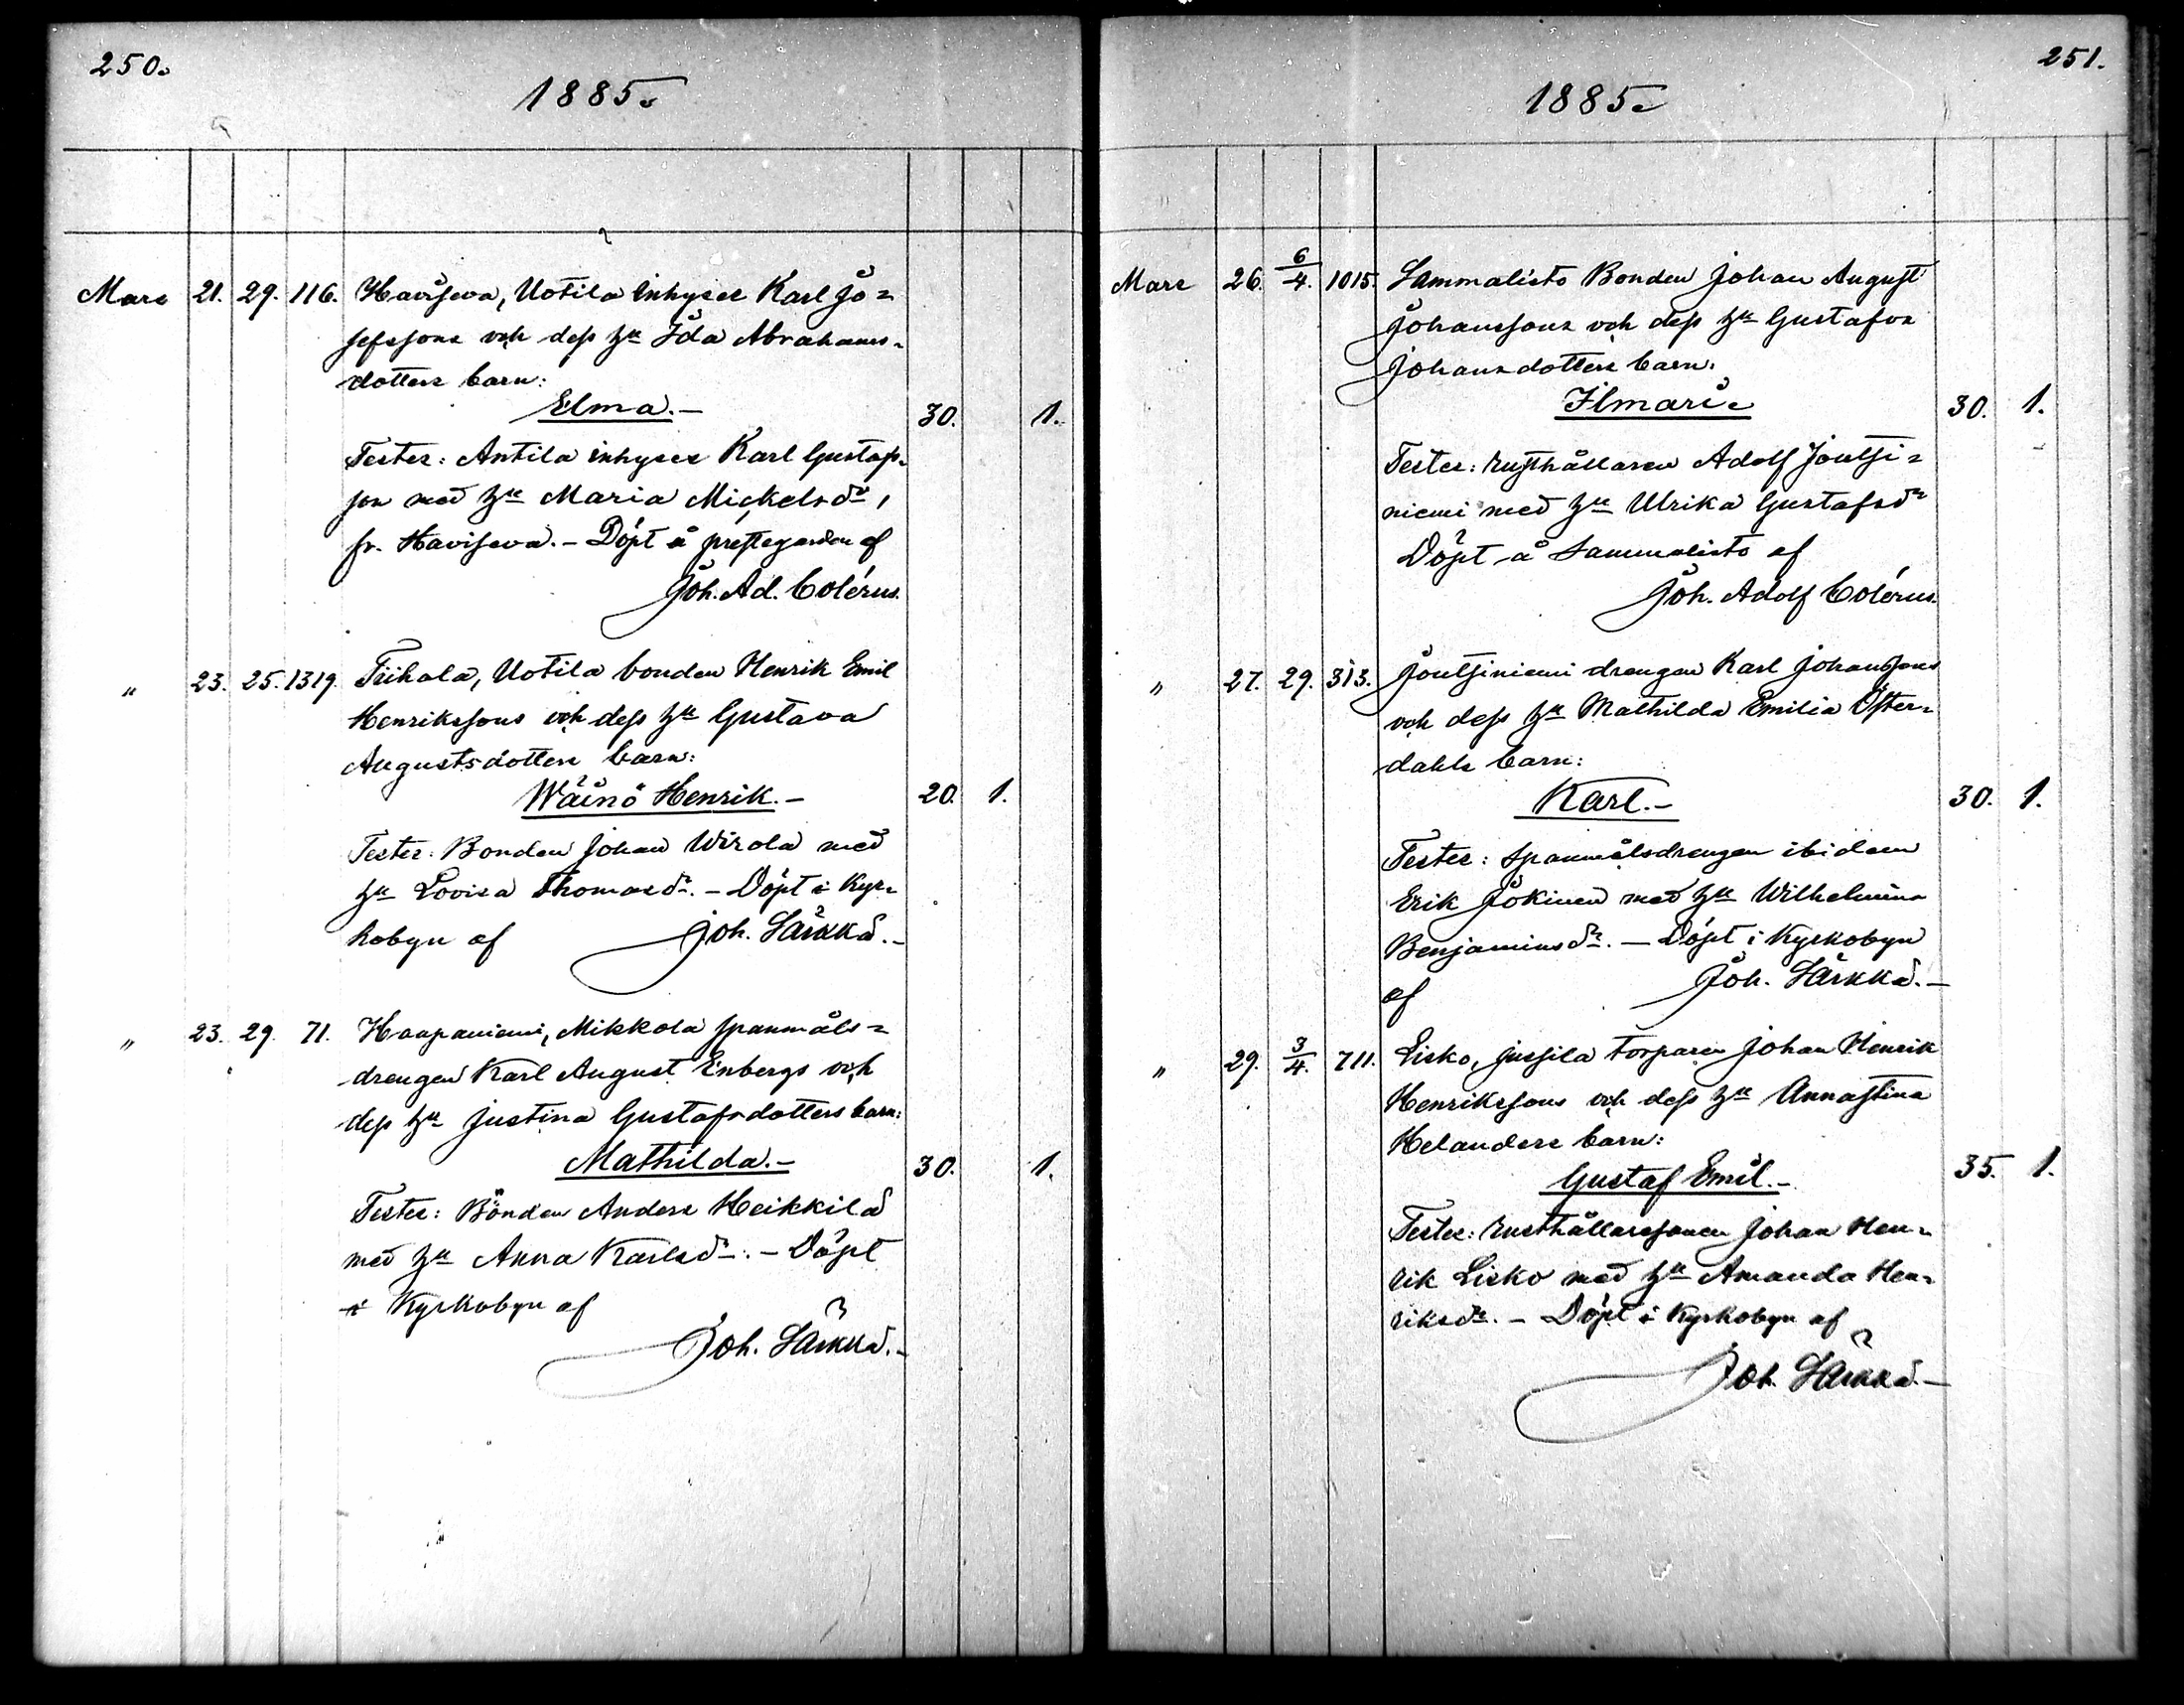 250.
1885.
Mars 21. 29. 116. Haviseva, Uotila inhyses Karl Jo=
sefssons och dess hu Ida Abrahams-
dotters barn:
Elma.- 30. 1.
Testes: Antila inhyses Karl Gustafs-
son med hu Maria Mickelsdr,
fr. Haviseva. - Döpt å prestegården af
Joh. Ad. Colérus.
" 23. 25. 1319. Tiihala, Uotila bonden Henrik Emil
Henrikssons och dess hu Gustava
Augustsdotters barn:
Wäinö Henrik.- 20. 1.
Testes: Bonden Johan Wirola med
hu Lovisa Thomasdr. - Döpt i Kyr-
kobyn af Joh. Särkkä.-
" 23. 29. 71. Haapaniemi, Mikkola spanmåls=
drengen Karl August Enbergs och
dess hu Justina Gustafsdotters barn:
Mathilda.- 30. 1.
Testes: Bonden Anders Heikkilä
med hu Anna Karlsdr. - Döpt
i Kyrkobyn af
Joh. Särkkä.-
251.
1885.
Mars 26. 6/4. 1015. Sammalisto Bonden Johan August
Johanssons och dess hu Gustafva
Johansdotters barn:
Ilmari. 30. 1.
Testes: rusthållaren Adolf Joutsi=
niemi med hu Ulrika Gustafsdr
Döpt å Sammalisto af
Joh. Adolf Colérus.
" 27. 29. 313. Joutsiniemi drengen Karl Johanssons
och dess hu Mathilda Emilia Öster-
dahls barn:
Karl.- 30. 1.
Testes: Spanmålsdrengen ibidem
Erik Jokinen med hu Wilhelmina
Benjaminsdr. - Döpt i Kyrkobyn
af Joh. Särkkä.-
" 29. 3/4. 711. Lisko, Jussila torparen Johan Henrik
Henrikssons och dess hu Annastina
Helanders barn:
Gustaf Emil.- 35. 1.
Testes: rusthållaressonen Johan Hen-
rik Lisko med hu Amanda Hen-
riksdr. - Döpt i Kyrkobyn af
Joh. Särkkä.-